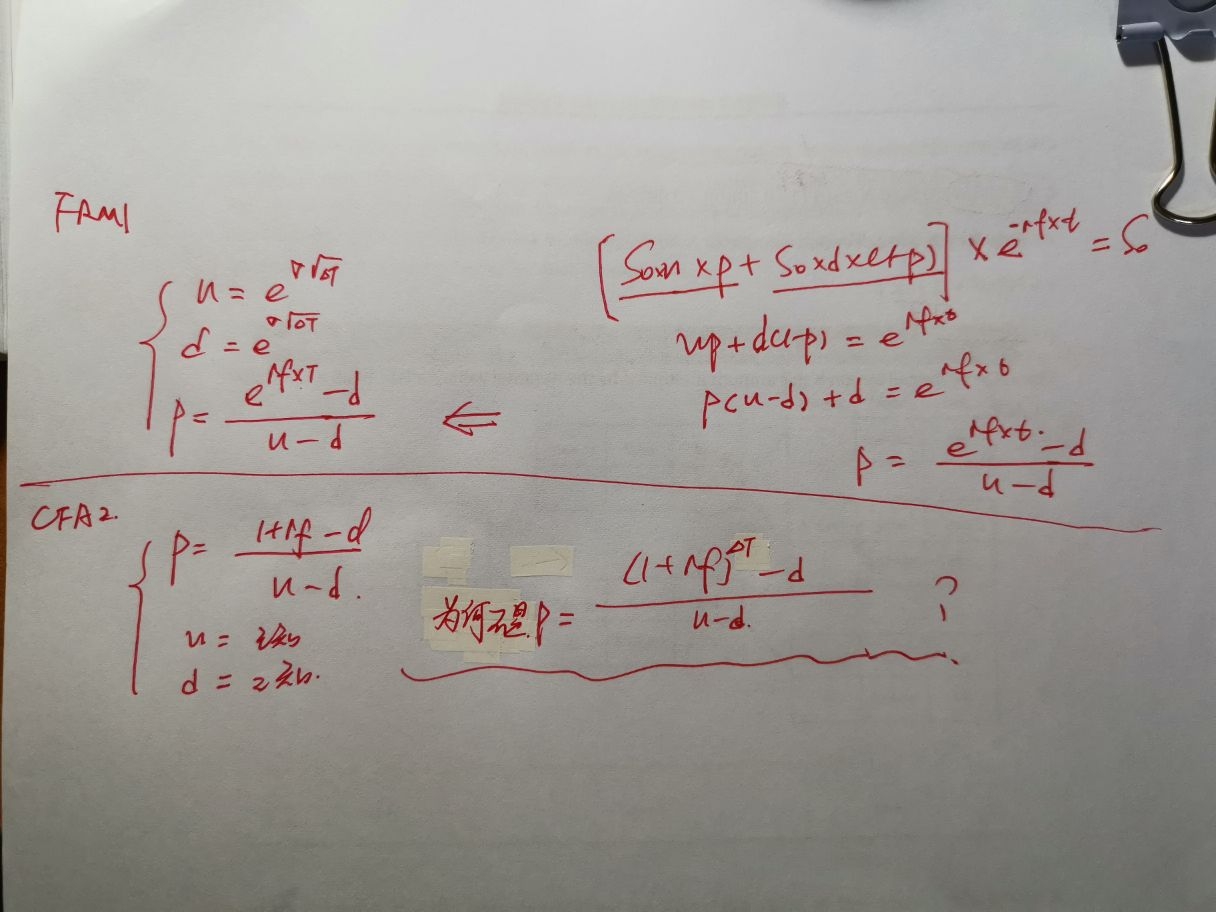 FRM1
u = e^σ√ΔT
d = e^σ√ΔT
p = (e^rf×T - d) / (u - d)
⇐
[S₀×u×p + S₀×d×(1-p)] × e^-rf×t = S₀
up + d(1-p) = e^rf×t
p(u-d) + d = e^rf×t
p = (e^rf×t - d) / (u - d)
CFA2.
p = (1+rf - d) / (u - d).
u = 已知
d = 已知.
为何不是 p = ((1+rf)^ΔT - d) / (u - d). ?